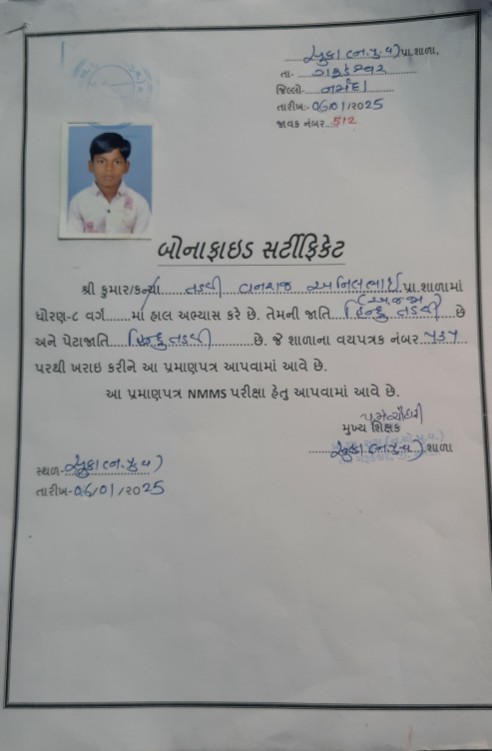 સુકા (ન.પુ.વ) પ્રા.શાળા,
તા- ગરૂડેશ્વર
જિલ્લો- નર્મદા
તારીખ:- 06/01/2025
જાવક નંબર.. 512
બોનાફાઇડ સર્ટીફિકેટ
શ્રી કુમાર/કન્યા.... તડવી વનરાજ અનિલભાઇ. પ્રા.શાળામાં
(અ.જ.જા)
ધોરણ-૮ વર્ગ......માં હાલ અભ્યાસ કરે છે. તેમની જાતિ હિન્દુ તડવી છે
અને પેટાજાતિ હિન્દુ તડવી છે. જે શાળાના વયપત્રક નંબર ૫૩૫
પરથી ખરાઇ કરીને આ પ્રમાણપત્ર આપવામાં આવે છે.
આ પ્રમાણપત્ર NMMS પરીક્ષા હેતુ આપવામાં આવે છે.
મુખ્ય શિક્ષક
સુકા (ન.પુ.વ) શાળા
સ્થળ- સુકા (ન.પુ.વ)
તારીખ- 06/01/2025